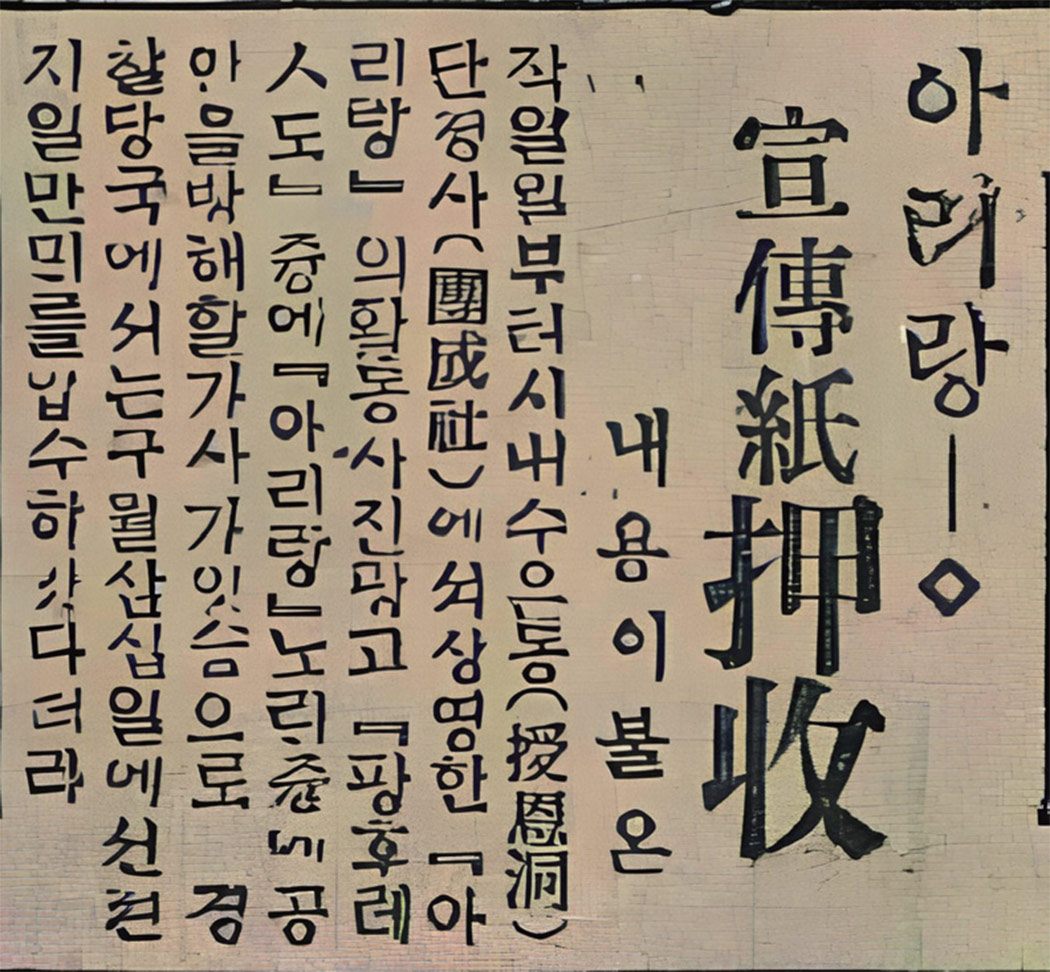 아리랑—◇
宣傳紙押收
내용이불온
작일일부터시내수은동(授恩洞)
단정사(團成社)에서상영한『아
리랑』의활동사진광고『팡후레
스도』중에『아리랑』노리중에공
안을방해할가사가잇슴으로 경
찰당국에서는구월삼십일에선뎐
지일만미를압수하얏다더라